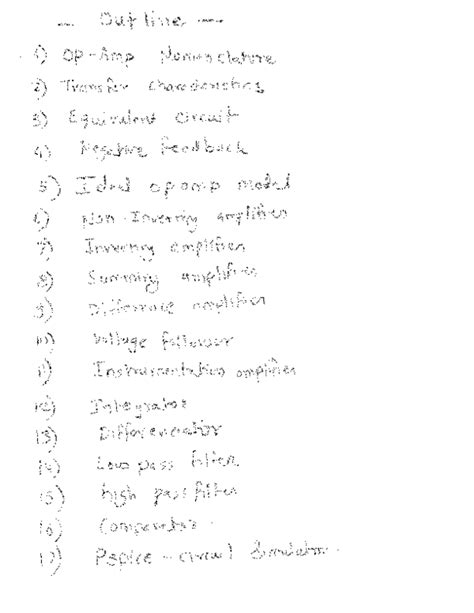 Outline
1) Op-Amp Nomenclature
2) Transfer Characteristics
3) Equivalent Circuit
4) Negative feedback
5) Ideal opamp model
6) Non-Inverting amplifier
7) Inverting amplifier
8) Summing amplifier
9) Difference amplifier
10) Voltage follower
11) Instrumentation amplifier
12) Integrator
13) Differenciator
14) Low pass filter
15) high pass filter
16) Comparator
17) Pspice - circuit Simulation